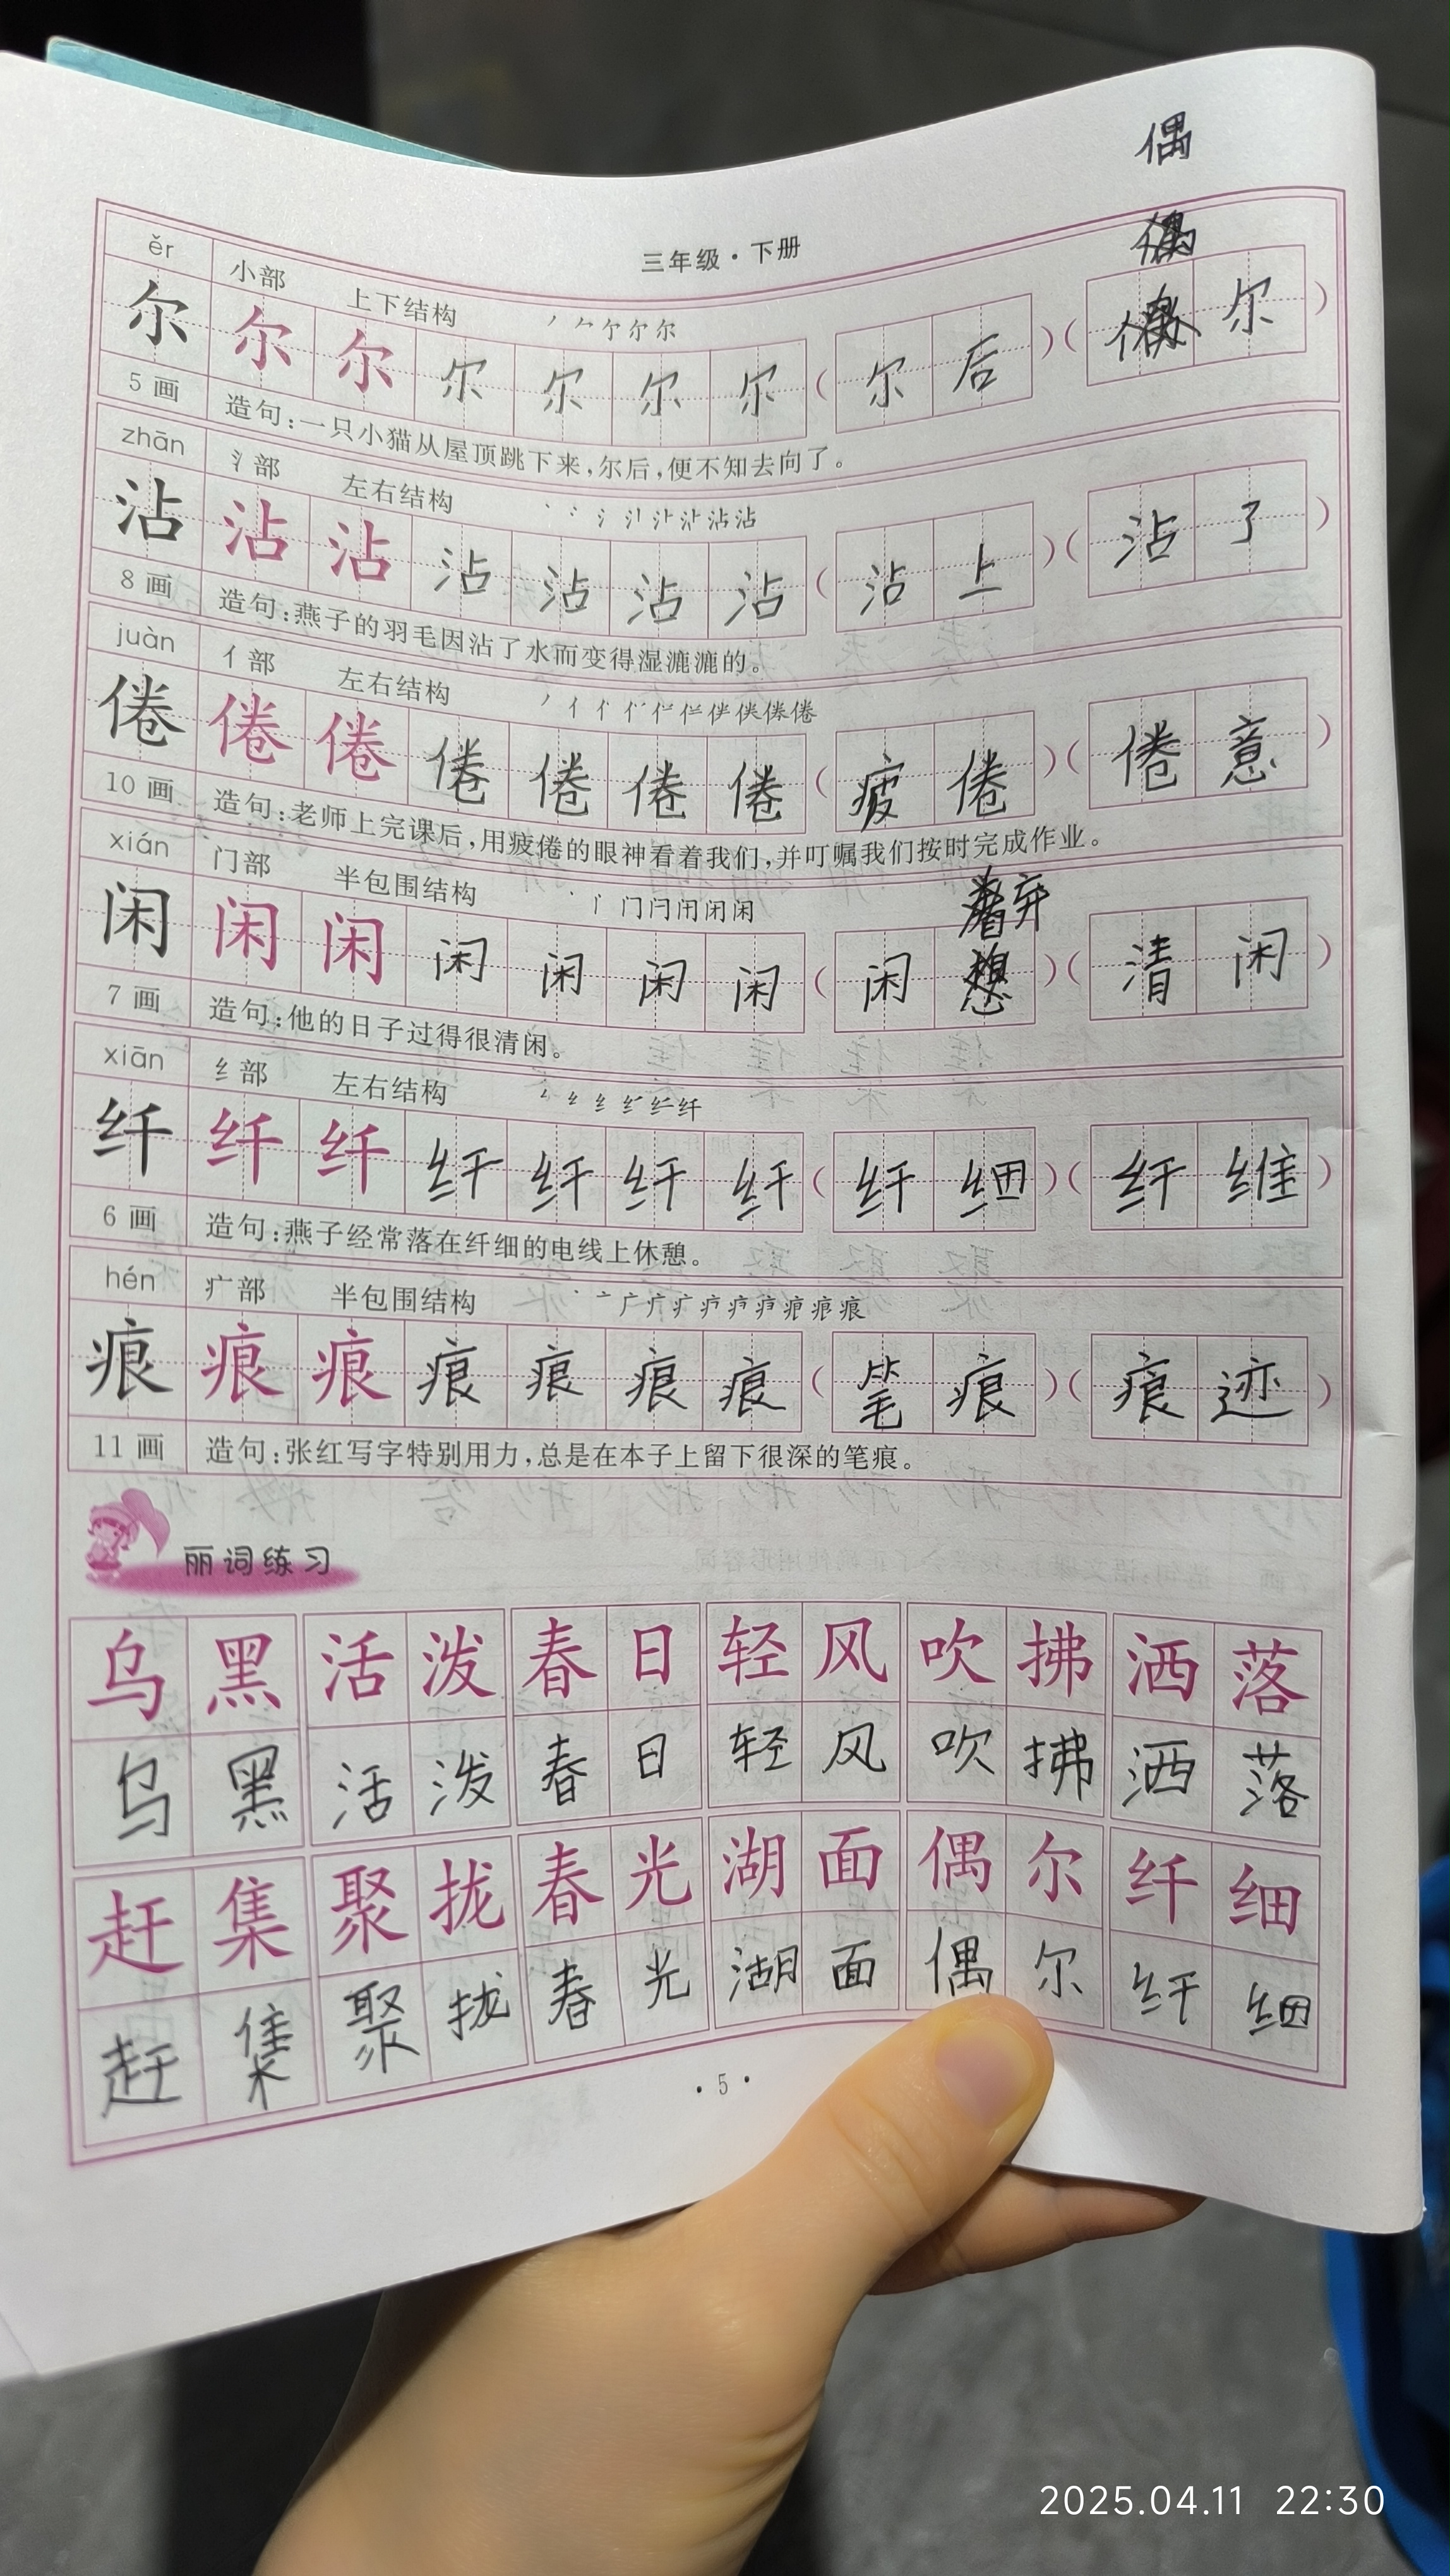 偶
三年级·下册
ěr 小部 上下结构
尔 尔 尔 尔 尔 尔 尔 ( 尔 后 )( 尔 )
5 画 造句:一只小猫从屋顶跳下来,尔后,便不知去向了。
zhān 氵部 左右结构
沾 沾 沾 沾 沾 沾 沾 ( 沾 上 )( 沾 了 )
8 画 造句:燕子的羽毛因沾了水而变得湿漉漉的。
juàn 亻部 左右结构
倦 倦 倦 倦 倦 倦 倦 ( 疲 倦 )( 倦 意 )
10 画 造句:老师上完课后,用疲倦的眼神看着我们,并叮嘱我们按时完成作业。
xián 门部 半包围结构
闲 闲 闲 闲 闲 闲 闲 ( 闲 )( 清 闲 )
7 画 造句:他的日子过得很清闲。
xiān 纟部 左右结构
纤 纤 纤 纤 纤 纤 纤 ( 纤 细 )( 纤 维 )
6 画 造句:燕子经常落在纤细的电线上休憩。
hén 疒部 半包围结构
痕 痕 痕 痕 痕 痕 痕 ( 笔 痕 )( 痕 迹 )
11 画 造句:张红写字特别用力,总是在本子上留下很深的笔痕。
丽词练习
乌 黑 活 泼 春 日 轻 风 吹 拂 洒 落
乌 黑 活 泼 春 日 轻 风 吹 拂 洒 落
赶 集 聚 拢 春 光 湖 面 偶 尔 纤 细
赶 集 聚 拢 春 光 湖 面 偶 尔 纤 细
·5·
2025.04.11 22:30